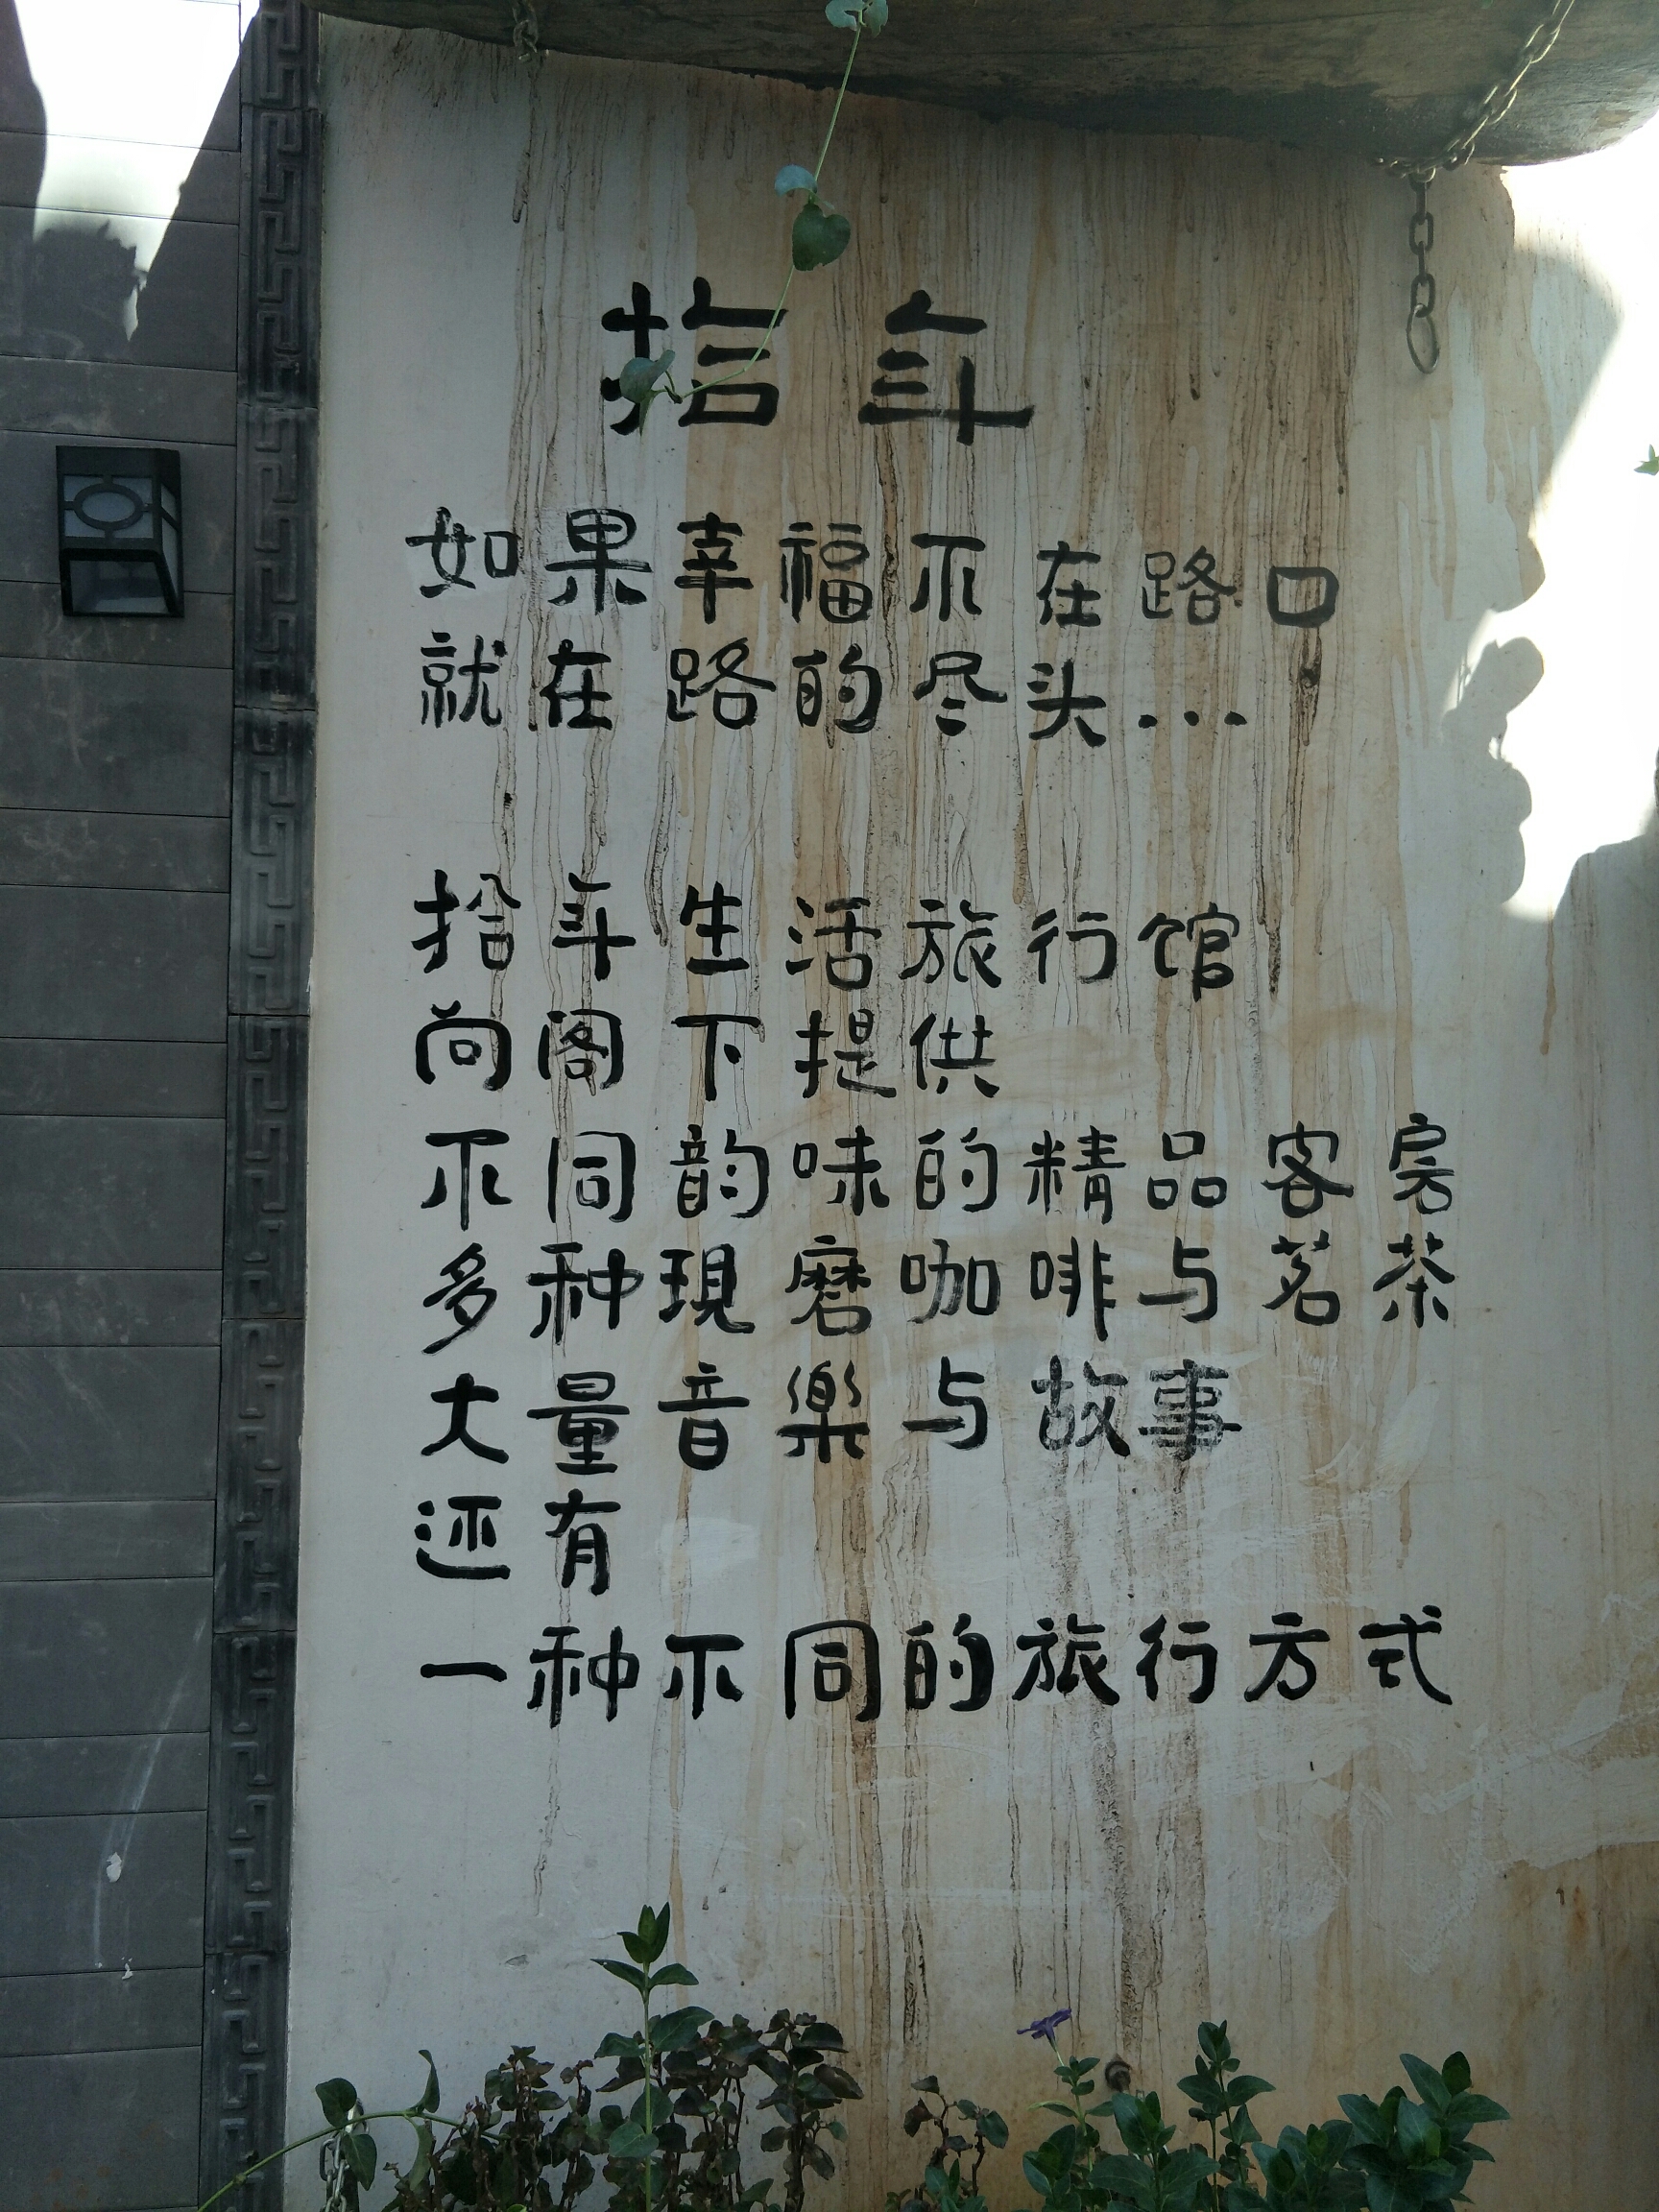 拾年
如果幸福不在路口
就在路的尽头...
拾年生活旅行馆
向阁下提供
不同韵味的精品客房
多种現磨咖啡与茗茶
大量音樂与故事
还有
一种不同的旅行方式